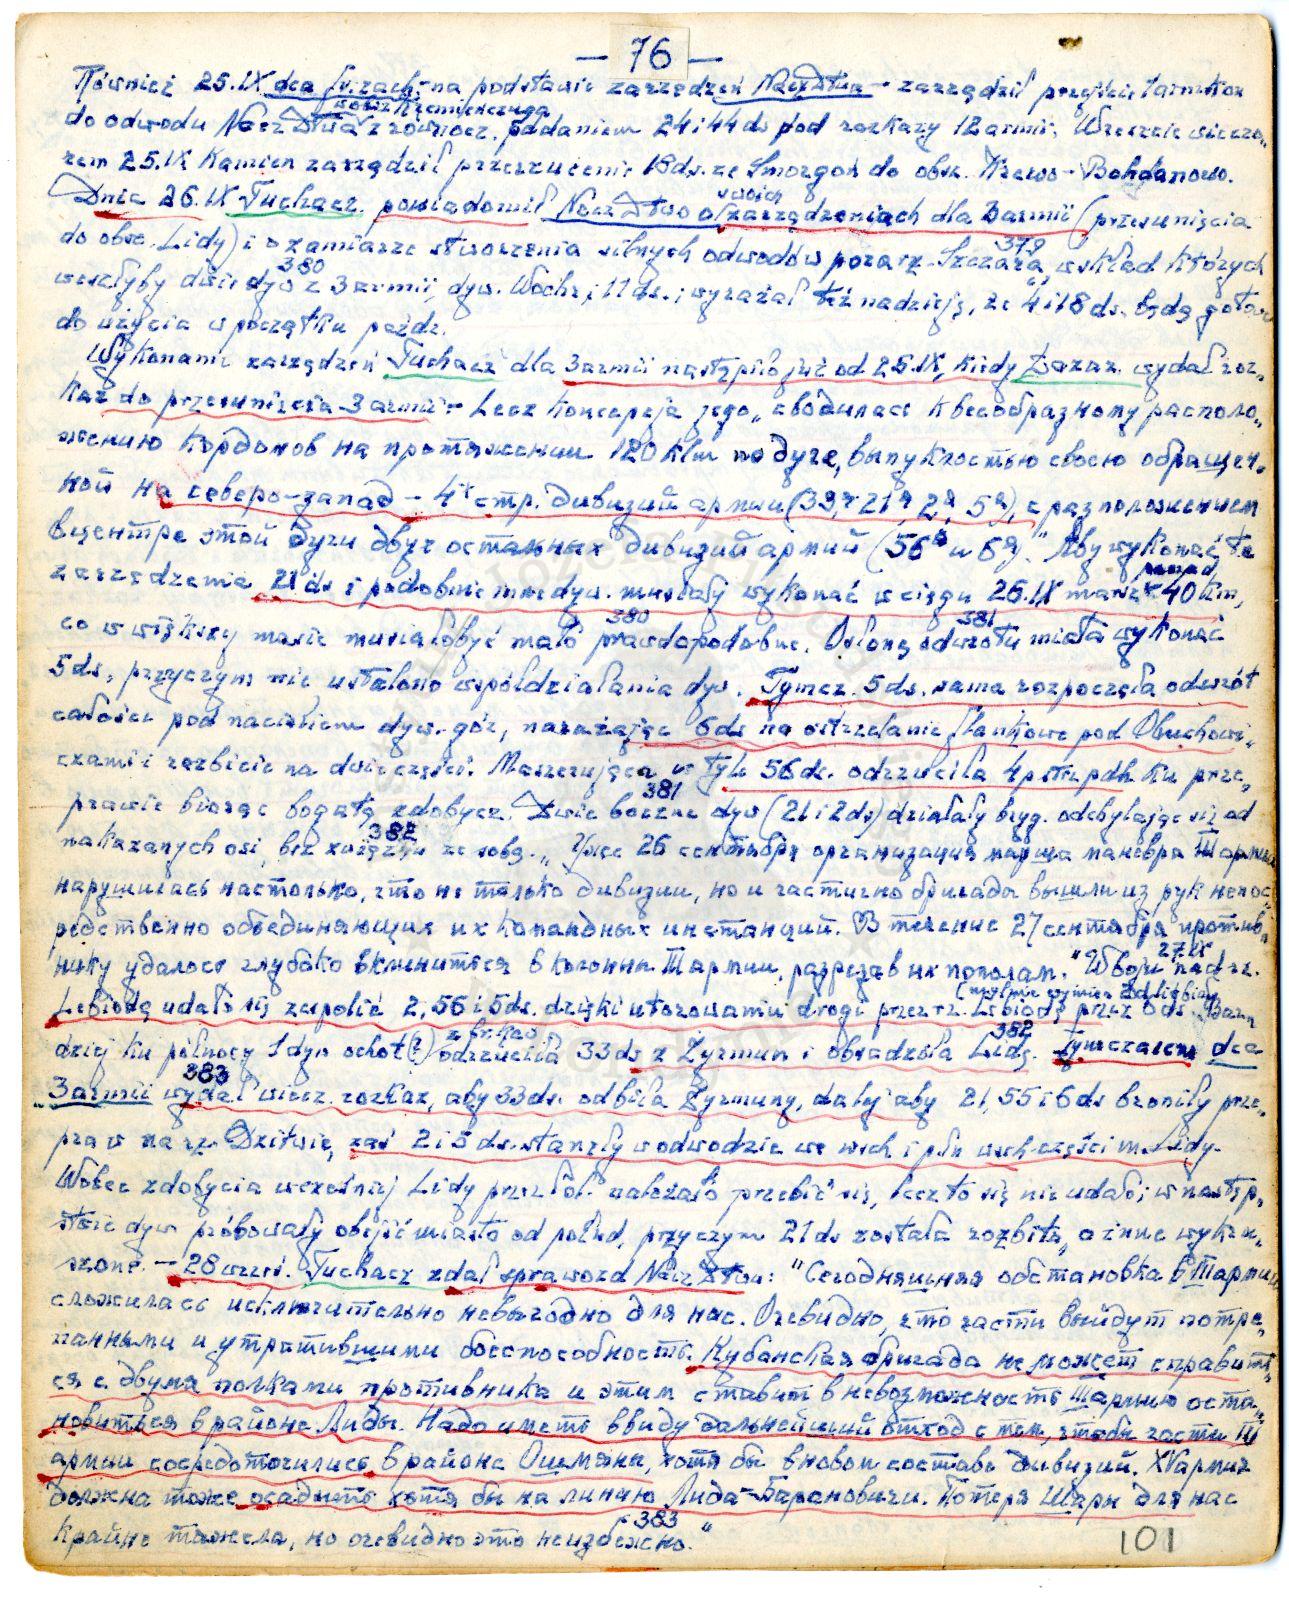 — 76 —
Również 25.IX dca fr. zach. na podstawie zarządzeń Nacz Dtwa — zarządził przejście
wobec Krzemieńczuga
do odwodu Nacz Dtwa z równocz. poddaniem 24 i 44 ds pod rozkazy 12 armii. Wreszcie wieczo-
rem 25.IX Kamien zarządził przerzucenie 18 ds. ze Smorgoń do obsz. Krewo - Bohdanowo.
Dnia 26.IX Tuchacz. powiadomił Nacz Dtwo o swoich zarządzeniach dla 3 armii (przesunięcia
do obsz. Lidy) i o zamiarze stworzenia silnych odwodów poza rz. Szczarą, w skład których 379
weszłyby dwie dyw z 3 armii, dyw. Wochr. i 11 ds. i wyrażał też nadzieję, że "4 i 18 ds. będą gotowe 380
do użycia w początku paźdz.
Wykonanie zarządzeń Tuchacz dla 3 armii nastąpiło już od 25.IX, kiedy Łazar. wydał roz-
kaz do przesunięcia 3 armii — Lecz koncepcja jego „сводилась к весообразному располо-
жению кордонов на протяжении 120 klm по дуге, выпуклостью своею обращен-
ной на северо-запад — 4х стр. дивизий армии (33я, 21я, 2я, 5я), с разположением
в центре этой дуги двух остальных дивизий армий (56я и 6я)." Aby wykonać te
zarządzenia 21 ds i podobnie inne dyw. musiały wykonać w ciągu 26.IX marsz ponad 40 km,
co w większej masie musiało być mało prawdopodobne. 380 Osłonę odwrotu miała wykonać 381
5 ds, przyczym nie ustalono współdziałania dyw. Tymcz. 5 ds. sama rozpoczęła odwrót
całości pod naciskiem dyw. gór, narażając 6 ds na ostrzelanie flankowe pod Obuchowi-
czami i rozbicie na dwie części. Maszerująca w tyle 56 ds. odrzuciła 4 p strz pdh ku prze-
prawie biorąc bogatą zdobycz. 381 Dwie boczne dyw (21 i 2 ds) działały bryg. odchylając się od
nakazanych osi, bez związku ze sobą. 382 „Уже 26 сентября организация марша маневра III армии
нарушилась настолько, что не только дивизии, но и частично бригады вышли из рук непос-
редственно объединяющих их командных инстанций. В течение 27 сентября против-
нику удалось глубоко вклиниться в колонны III армии, разрезав их пополам." W boju 27.IX nad rz.
Lebiodą udało się zespolić 2, 56 i 5 ds. dzięki utorowaniu drogi przez rz. Lebiodę przez 6 ds. Bar-
dziej ku północy 1 dyw ochot (?) z br. kaw odrzuciła 33 ds z Żyrmun i obsadziła Lidę. 382 Tymczasem dca
3 armii wydał wiecz. rozkaz, 383 aby 33 ds. odbiła Żyrmuny, dalej aby 21, 55 i 6 ds broniły prze-
praw na rz. Dzitwie, zaś 2 i 5 ds. stanęły w odwodzie we wsch i płn wsch. części m. Lidy.
Wobec zdobycia wcześniej Lidy przez należało przebić się, lecz to się nie udało; w następ-
stwie dyw próbowały obejść miasto od połud, przyczym 21 ds została rozbita, a inne wykru-
szone. — 28 wrześ. Tuchacz zdał sprawozd Nacz Dtwu: "Сегодняшняя обстановка в III армии
сложилась исключительно невыгодно для нас. Очевидно, что части выйдут потре-
панными и утратившими боеспособность. Кубанская бригада не может справить-
ся с двумя полками противника и этим ставит в невозможность III армию оста-
новиться в районе Лиды. Надо иметь ввиду дальнейший отход с тем, чтобы части III
армии сосредоточились в районе Ошмяны, хотя бы в новом составе дивизий. XV армия
должна тоже осадить хотя бы на линию Лида — Барановичи. Потеря Шары для нас
крайне тяжела, но очевидно это неизбежно." 383
101